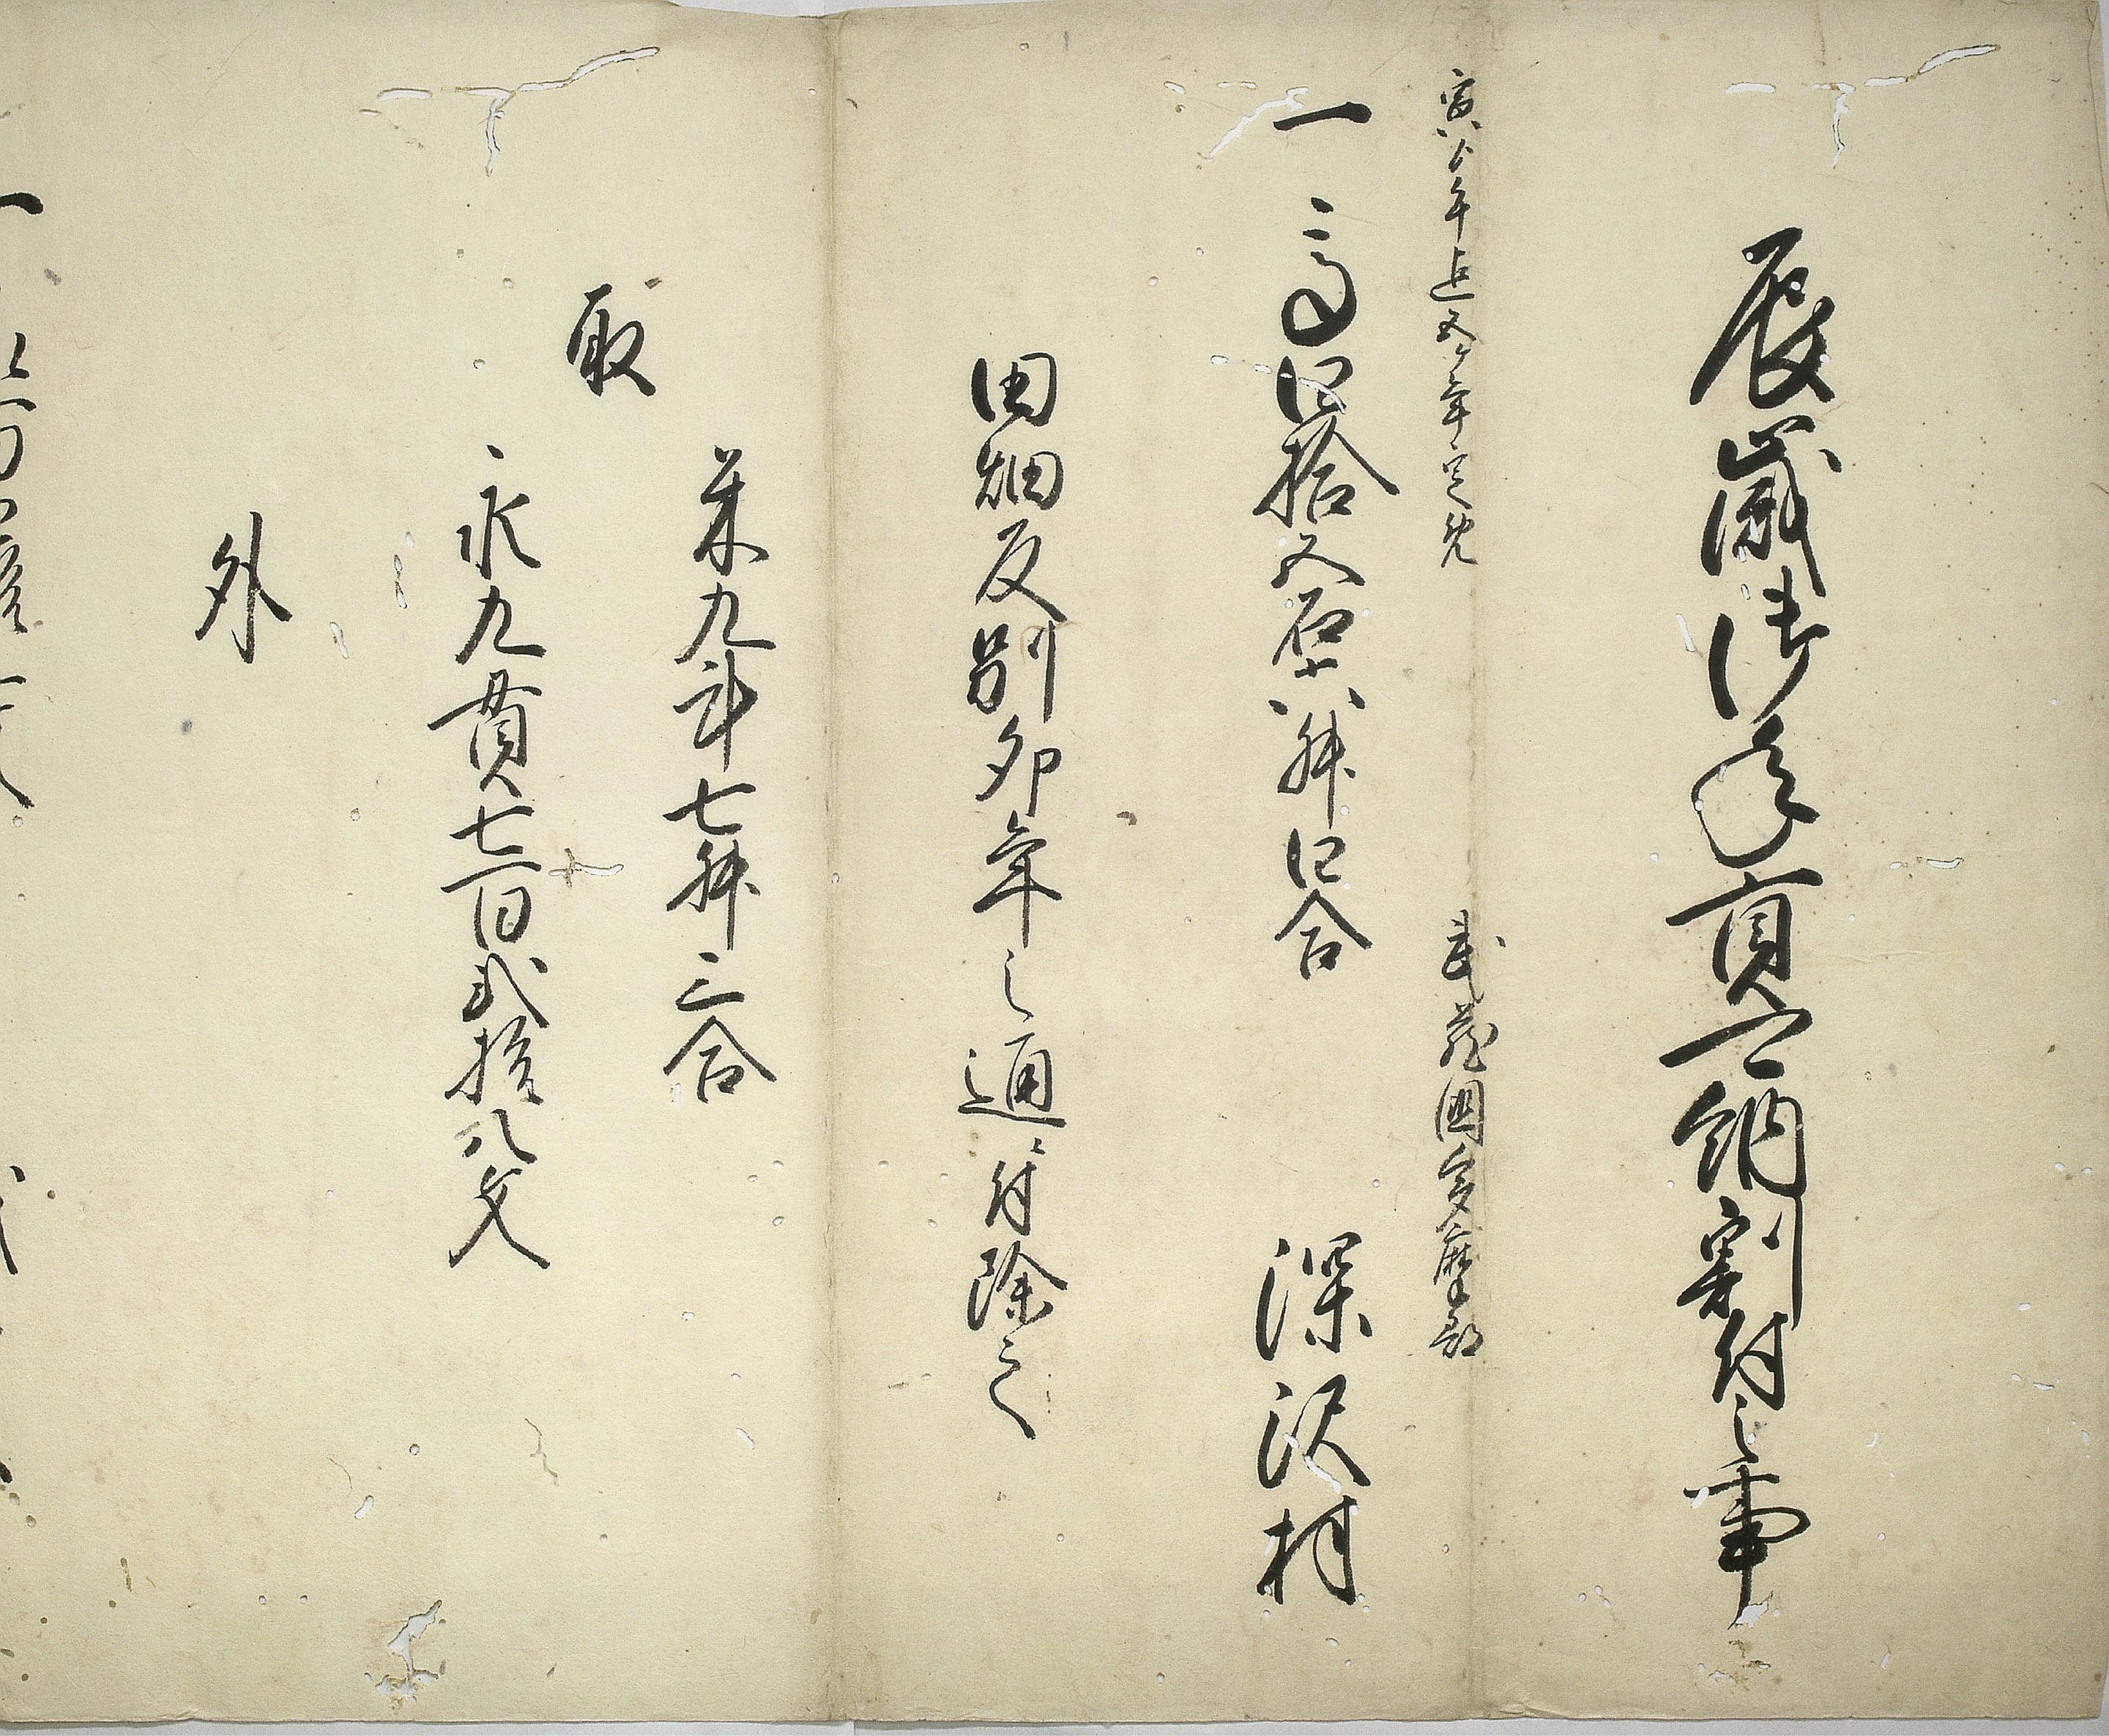 辰歳御年貢可納割付之事
寅ゟ午迄五ケ年定免
武蔵国多摩郡
一高四拾五石六斗八升四合 深沢村
田畑反別卯年之通ニ付除之
取
米九斗七升三合
永九貫七百弐拾八文
外
一